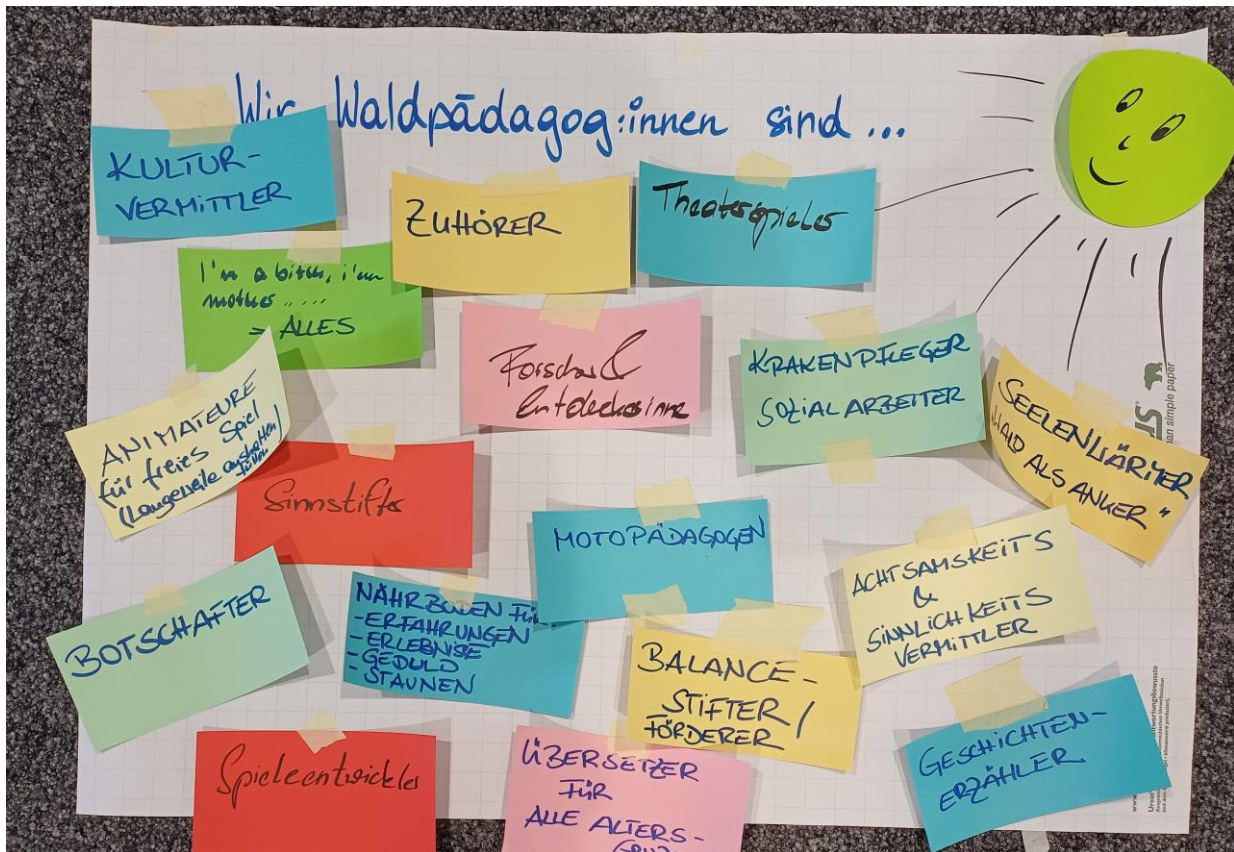 Wir Waldpädagog:innen sind...
KULTUR-
VERMITTLER
ZUHÖRER
Theaterspieler
I'm a bitch, i'm
mother .....
= ALLES
Forscher &
Entdeckerinne
KRAKENPFLEGER
SOZIALARBEITER
SEELENWÄRMER
"WALD ALS ANKER"
ANIMATEURE
für freies Spiel
(Langeweile aushalten/
Sinnstifter
MOTOPÄDAGOGEN
ACHTSAMSKEITS
&
SINNLICHKEITS
VERMITTLER
BOTSCHAFTER
NÄHRBODEN FÜR
-ERFAHRUNGEN
-ERLEBNISE
-GEDULD
-STAUNEN
BALANCE-
STIFTER/
FÖRDERER
GESCHICHTEN-
ERZÄHLER
Spieleentwickler
ÜBERSETZER
FÜR
ALLE ALTERS-
an simple paper